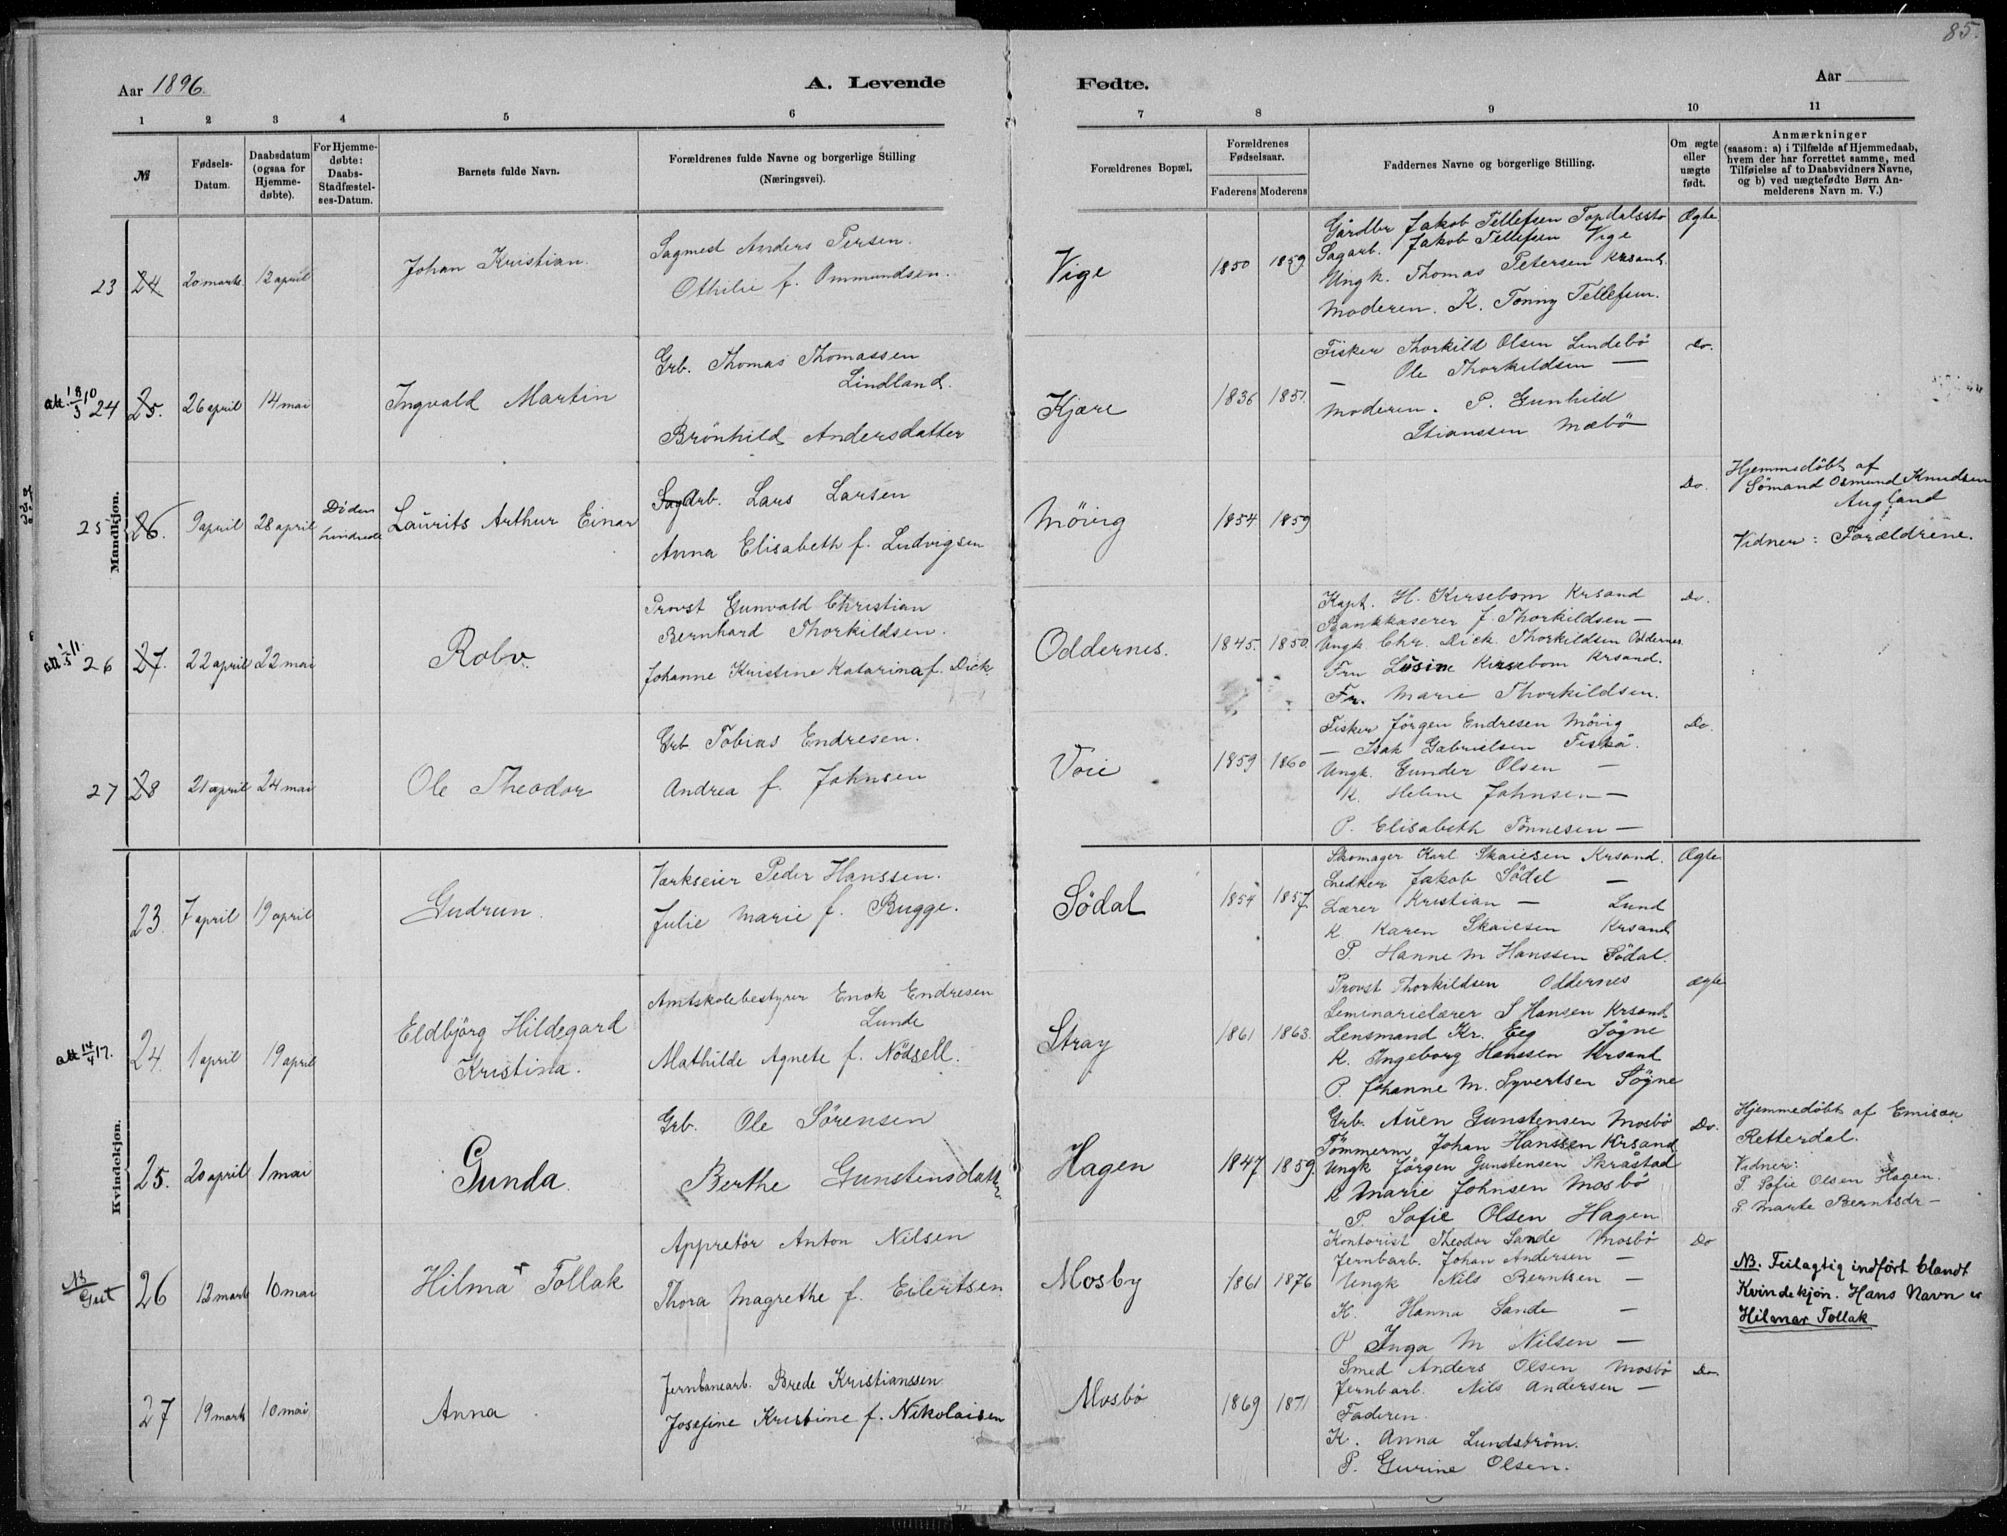 85.
Aar 1896.
A. Levende
Fødte.
Aar
1 2 3 4 5 6
7 8 9 10 11
№
Fødsels-
Datum.
Daabsdatum
(ogsaa for
Hjemme-
døbte).
For Hjemme-
døbte:
Daabs-
Stadfæstel-
ses-Datum.
Barnets fulde Navn.
Forældrenes fulde Navne og borgerlige Stilling
(Næringsvei).
Forældrenes Bopæl.
Forældrenes
Fødselsaar.
Faderens Moderens
Faddernes Navne og borgerlige Stilling.
Om ægte
eller
uægte
født.
Anmærkninger
(saasom: a) i Tilfælde af Hjemmedaab,
hvem der har forrettet samme, med
Tilføielse af to Daabsvidners Navne,
og b) ved uægtefødte Børn An-
melderens Navn m. V.)
Mandkjøn.
23 24 20 marts 12 april
Johan Kristian.
Sagmest Anders Persen.
Othilie f. Ommundsen.
Vige
1850 1859
Gårdbr Jakob Tellefsen Topdalsstø
Sagarb. Jakob Tellefsen Vige
Ungk. Thomas Petersen Krsand.
Moderen. K. Tonny Tellefsen.
Ægte
att. 18/3 10 24 25. 26 april 14 mai
Ingvald Martin
Grb. Thomas Thomassen
Lindland.
Brönhild Andersdatter
Kjære
1836 1851.
Fisker Thorkild Olsen Lindebö
— Ole Thorkildsen —
Moderen. P. Gunhild
Stianssen Mæbö
Do.
25 26. 9 april 28 april
Döden
hindrede
Laurits Arthur Einar
Sag Arb. Lars Larsen
Anna Elisabeth f. Ludvigsen
Möwig
1854 1859
Do.
Hjemmedöbt af
Sömand Osmund Knudsen
Augland
Vidner: Forældrene.
att. 1/5 11. 26 27. 22 april 22 mai
Rolv.
Provst Gunvald Christian
Bernhard Thorkildsen.
Johanne Kristine Katarina f. Dick
Oddernes.
1845. 1850.
Kapt. H. Kirsebom Krsand
Bankkaserer J. Thorkildsen —
Ungk Chr. Dick Thorkildsen Oddernes
Fru Lusine Kirsebom Krsand.
Fr. Marie Thorkildsen.
Do.
27 28 21 april 24 mai
Ole Theodor
Grb Tobias Endresen.
Andrea f. Johnsen
Voie
1859 1860
Fisker Jörgen Endresen Mövig
— Isak Gabrielsen Fiskå.
Ungk. Gunder Olsen —
K. Helene Johnsen —
P. Elisabeth Tönnesen —
Do.
Kvindekjøn.
23. 7 april 19 april
Gudrun.
Værkseier Peder Hanssen.
Julie Marie f. Bugge.
Södal
1854 1857.
Skomager Karl Skaiesen Krsand.
Snedker Jakob Södel —
Lærer Kristian — Lund
K Karen Skaiesen Krsand
P. Hanne M Hanssen Södal.
Ægte
att 14/4 17. 24. 1 april 19 april
Eldbjörg Hildegard
Kristina.
Amtskolebestyrer Enok Endresen
Lunde
Mathilde Agnete f. Nödsell.
Stray
1861 1863.
Provst Thorkildsen Oddernes
Seminarielærer S Hansen Krsand
Lensmand Kr. Eeg Sögne
K. Ingeborg Hanssen Krsand
P. Johanne M. Syvertsen Sögne
Ægte
25. 20 april 1 mai
Gunda.
Grb. Ole Sörensen
Berthe Gunstensdatter
Hagen
1847 1859
Grb. Auen Gunstensen Mosbö
Tömmerm Johan Hanssen Krsand
Ungk Jörgen Gunstensen Skråstad
K Marie Johnsen Mosbö
P. Sofie Olsen Hagen
Do.
Hjemmedöbt af Emisær
Retterdal.
Vidner:
P. Sofie Olsen Hagen.
P. Marte Berntsdr —
NB
Gut 26 13 marts 10 mai
Hilma r Tollak
Appretör Anton Nilsen
Thora Magrethe f. Eilertsen
Mosby
1861 1876
Kontorist Theodor Sande Mosbö
Jernbarb. Johan Andersen —
Ungk Nils Berntsen —
K. Hanna Sande —
P Inga M Nilsen —
Do
NB. Feilagtig indført blandt
Kvindekjön. Hans Navn er
Hilmar Tollak
27 19 marts 10 mai
Anna.
Jernbanearb. Brede Kristianssen
Josefine Kristine f. Nikolaisen
Mosbö
1869 1871
Smed Anders Olsen Mosbö
Jernbarb. Nils Andersen —
Faderen.
K. Anna Lundström.
P. Gurine Olsen.
Do.